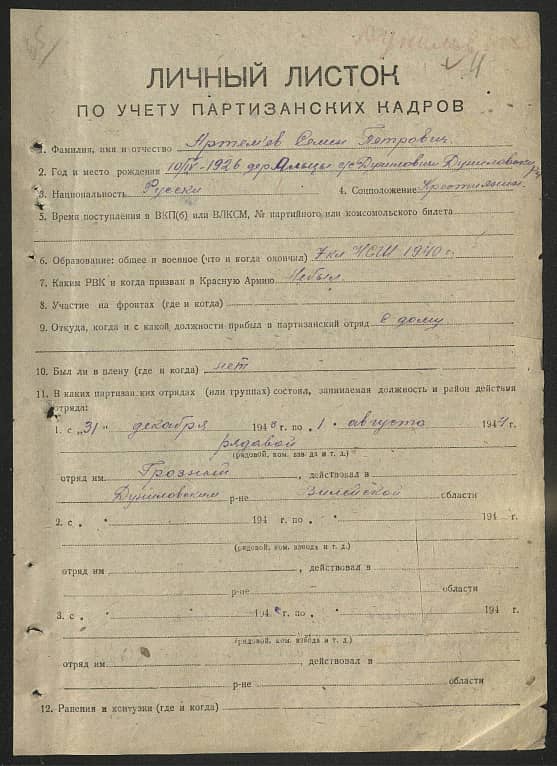 ЛИЧНЫЙ ЛИСТОК
ПО УЧЕТУ ПАРТИЗАНСКИХ КАДРОВ
1. Фамилия, имя и отчество Артемьев Семен Петрович
2. Год и место рождения 10/IV-1926 дер
3. Национальность Русский 4. Соцположение Крестьянин
5. Время поступления в ВКП(б) или ВЛКСМ, № партийного или комсомольского билета
6. Образование: общее и военное (что и когда окончил) 7 кл НСШ 1940 г.
7. Каким РВК и когда призван в Красную Армию Небыл
8. Участие на фронтах (где и когда)
9. Откуда, когда и с какой должности прибыл в партизанский отряд с дому
10. Был ли в плену (где и когда) нет
11. В каких партизанских отрядах (или группах) состоял, занимаемая должность и район действия
отряда:
1. с „31" декабря 1943 г по „1" августа 1944 г.
рядовой
(рядовой, ком. взвода и т. д.)
отряд им Грозный, действовал в
Дуниловским р-не Вилейской области
2. с „ " 194 г. по „ " 194 г.
(рядовой, ком. взвода и т. д.)
отряд им , действовал в
р-не области
3. с „ " 194 г. по „ " 194 г.
(рядовой, ком. взвода и т. д.)
отряд им , действовал в
р-не области
12. Ранения и контузии (где и когда)